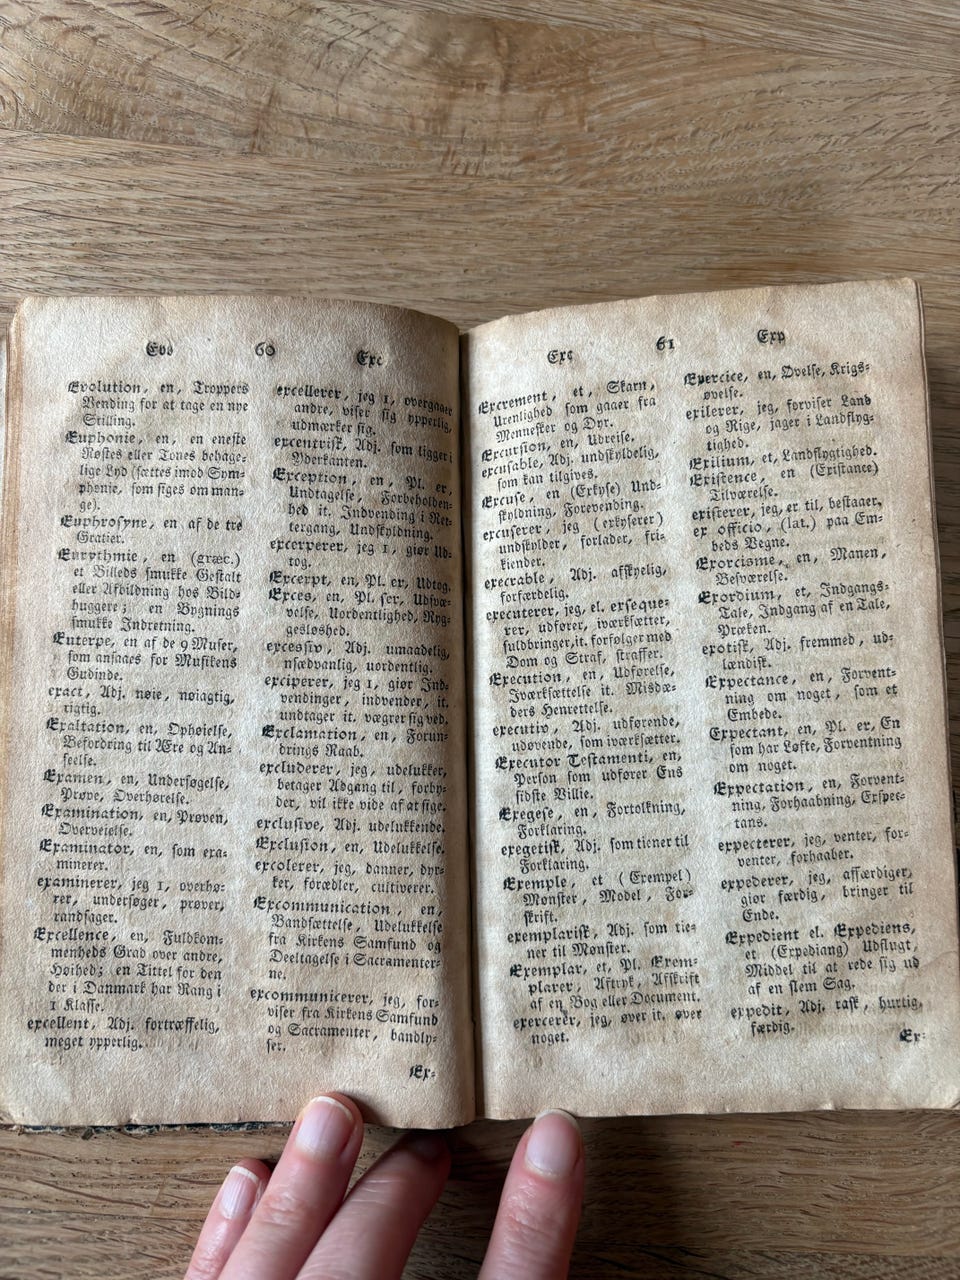 Evo 60 Exc
Evolution, en, Troppers
Vending for at tage en nye
Stilling.
Euphonie, en, en eneste
Røstes eller Tones behage-
lige Lyd (sættes imod Sym-
phonie, som siges om man-
ge).
Euphrosyne, en af de tre
Gratier.
Eurythmie, en (græc.)
et Billeds smukke Gestalt
eller Afbildning hos Bild-
huggere; en Bygnings
smukke Indretning.
Euterpe, en af de 9 Muser,
som ansaaes for Musikens
Gudinde.
exact, Adj. nøie, nøiagtig,
rigtig.
Exaltation, en, Ophøielse,
Befordring til Ære og An-
seelse.
Examen, en, Undersøgelse,
Prøve, Overhørelse.
Examination, en, Prøven,
Overveielse.
Examinator, en, som exa-
minerer.
examinerer, jeg 1, overhø-
rer, undersøger, prøver,
randsager.
Excellence, en, Fuldkom-
menheds Grad over andre,
Høihed; en Tittel for den
der i Danmark har Rang i
1 Klasse.
excellent, Adj. fortræffelig,
meget ypperlig.
excellerer, jeg 1, overgaaer
andre, viser sig ypperlig,
udmærker sig.
excentrisk, Adj. som ligger i
Yderkanten.
Exception, en, Pl. er,
Undtagelse, Forbeholden-
hed it. Indvending i Ret-
tergang, Undskyldning.
excerperer, jeg 1, giør Ud-
tog.
Excerpt, en, Pl. er, Udtog.
Exces, en, Pl. ser, Udsvæ-
velse, Uordentlighed, Ryg-
gesløshed.
excessiv, Adj. umaadelig,
usædvanlig, uordentlig.
exciperer, jeg 1, giør Ind-
vendinger, indvender, it.
undtager it. vægrer sig ved.
Exclamation, en, Forun-
drings Raab.
excluderer, jeg, udelukker,
betager Adgang til, forby-
der, vil ikke vide af at sige.
exclusive, Adj. udelukkende.
Exclusion, en, Udelukkelse.
excolerer, jeg, danner, dyr-
ker, forædler, cultiverer.
Excommunication, en,
Bandsættelse, Udelukkelse
fra Kirkens Samfund og
Deeltagelse i Sacramenter-
ne.
excommunicerer, jeg, for-
viser fra Kirkens Samfund
og Sacramenter, bandly-
ser.
Ex-
Exc 61 Exp
Excrement, et, Skarn,
Urenlighed som gaaer fra
Mennesker og Dyr.
Excursion, en, Udreise.
excusable, Adj. undskyldelig,
som kan tilgives.
Excuse, en (Erkyse) Und-
skyldning, Forevending.
excuserer, jeg (erkyserer)
undskylder, forlader, fri-
kiender.
execrable, Adj. afskyelig,
forfærdelig.
executerer, jeg, el. exseque-
rer, udfører, iværksætter,
fuldbringer, it. forfølger med
Dom og Straf, straffer.
Execution, en, Udførelse,
Iværksættelse it. Misdæ-
ders Henrettelse.
executiv, Adj. udførende,
udøvende, som iværksætter.
Executor Testamenti, en,
Person som udfører Ens
sidste Villie.
Exegese, en, Fortolkning,
Forklaring.
exegetisk, Adj. som tiener til
Forklaring.
Exemple, et (Exempel)
Mønster, Model, For-
skrift.
exemplarisk, Adj. som tie-
ner til Mønster.
Exemplar, et, Pl. Exem-
plarer, Aftryk, Afskrift
af en Bog eller Document.
exercerer, jeg, øver it. øver
noget.
Exercice, en, Øvelse, Krigs-
øvelse.
exilerer, jeg, forviser Land
og Rige, jager i Landflyg-
tighed.
Exilium, et, Landflygtighed.
Existence, en (Existance)
Tilværelse.
existerer, jeg, er til, bestaaer.
ex officio, (lat.) paa Em-
beds Vegne.
Exorcisme, en, Manen,
Besværelse.
Exordium, et, Indgangs-
Tale, Indgang af en Tale,
Præken.
exotisk, Adj. fremmed, ud-
lændisk.
Expectance, en, Forvent-
ning om noget, som et
Embede.
Expectant, en, Pl. er, En
som har Løfte, Forventning
om noget.
Expectation, en, Forvent-
ning, Forhaabning, Exspec-
tans.
expecterer, jeg, venter, for-
venter, forhaaber.
expederer, jeg, affærdiger,
giør færdig, bringer til
Ende.
Expedient el. Expediens,
et (Expediang) Udflugt,
Middel til at rede sig ud
af en slem Sag.
expedit, Adj. rask, hurtig,
færdig.
Ex-